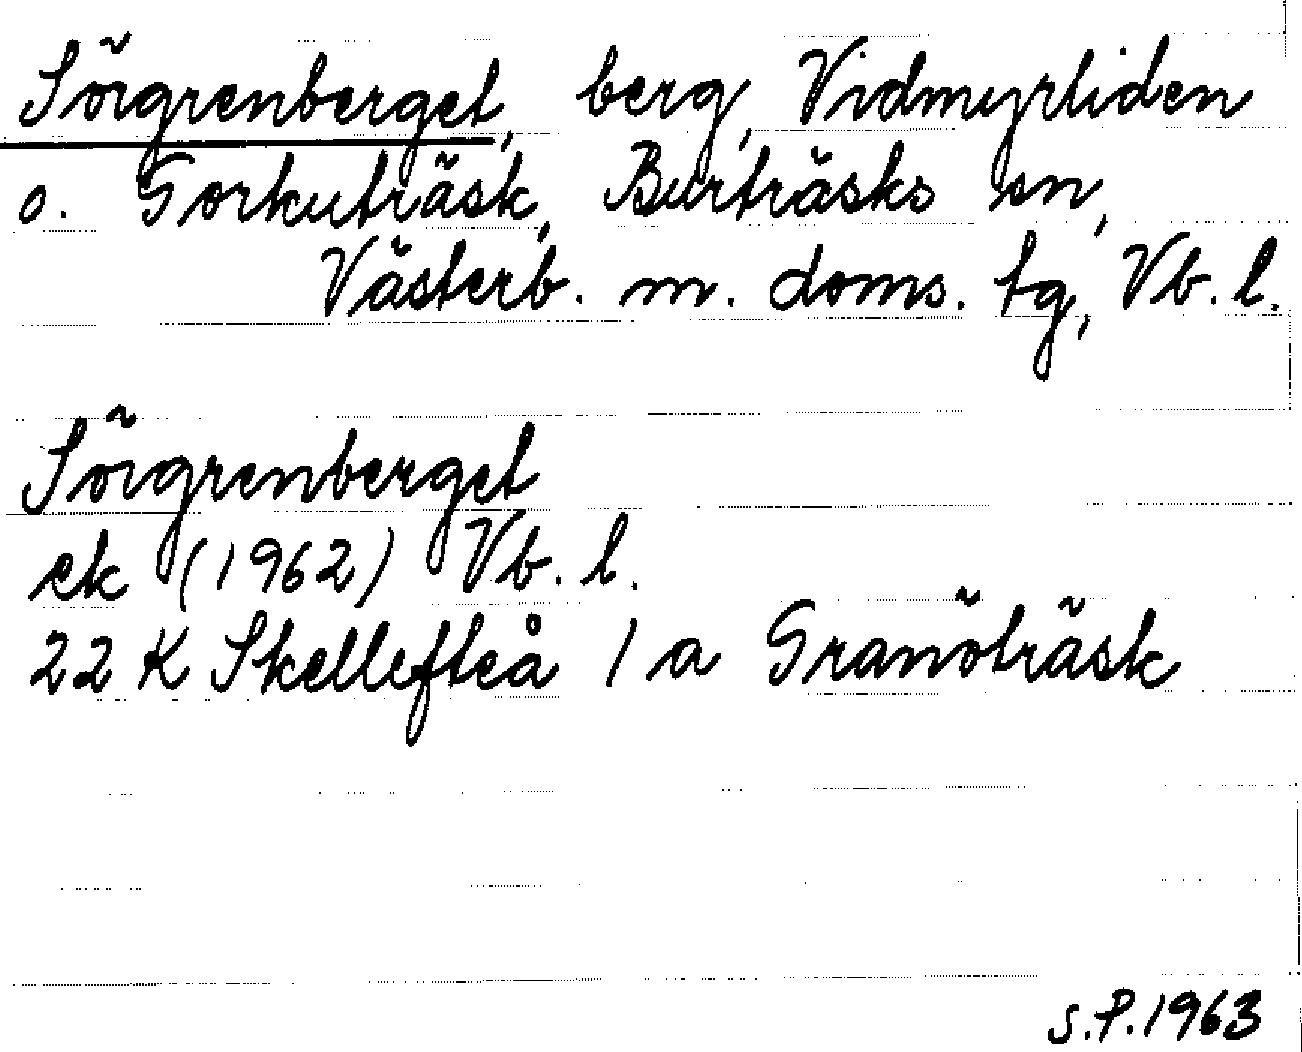 Sörgrenberget, berg, Vidmyrliden
o. Gorkuträsk, Burträsks sn,
Västerb. m. doms. tg, Vb. l.
Sörgrenberget
ek (1962) Vb. l.
22 K Skellefteå 1 a Granöträsk
S.P. 1963